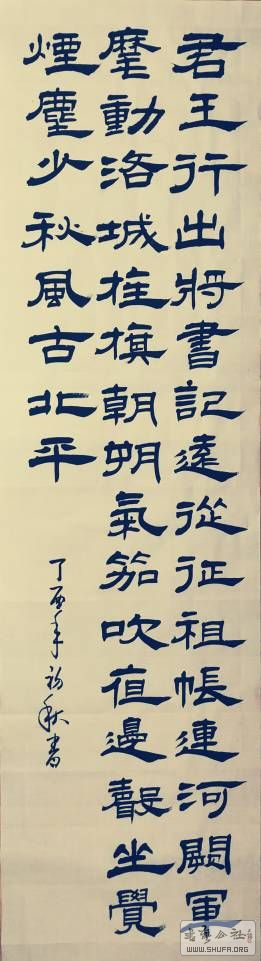 君王行出將書記遠從征祖帳連河闕軍
麾動洛城旌旗朝朔氣笳吹亱邊聲坐覺
煙塵少秋風古北平
丁酉年初秋書
WWW.SHUFA.ORG